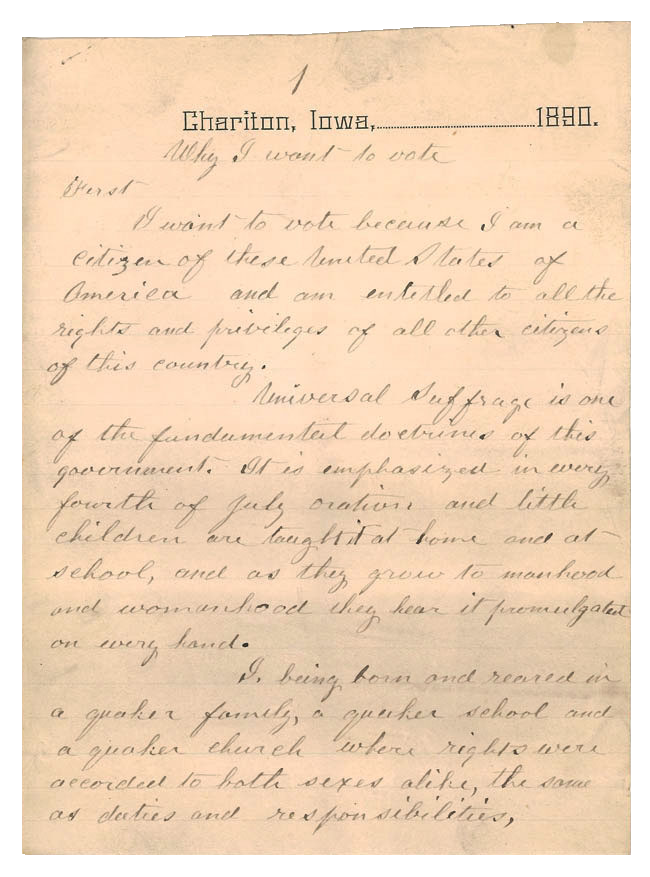 1
Chariton, Iowa,..............................1890.
Why I want to vote
First
I want to vote because I am a
citizen of these United States of
America and am entitled to all the
rights and privileges of all other citizens
of this country.
Universal Suffrage is one
of the fundamental doctrines of this
government. It is emphasized in every
fourth of July oration and little
children are taught it at home and at
school, and as they grow to manhood
and womanhood they hear it promulgated
on every hand.
I. being born and reared in
a quaker family, a quaker school and
a quaker church where rights were
accorded to both sexes alike, the same
as duties and responsibilities,